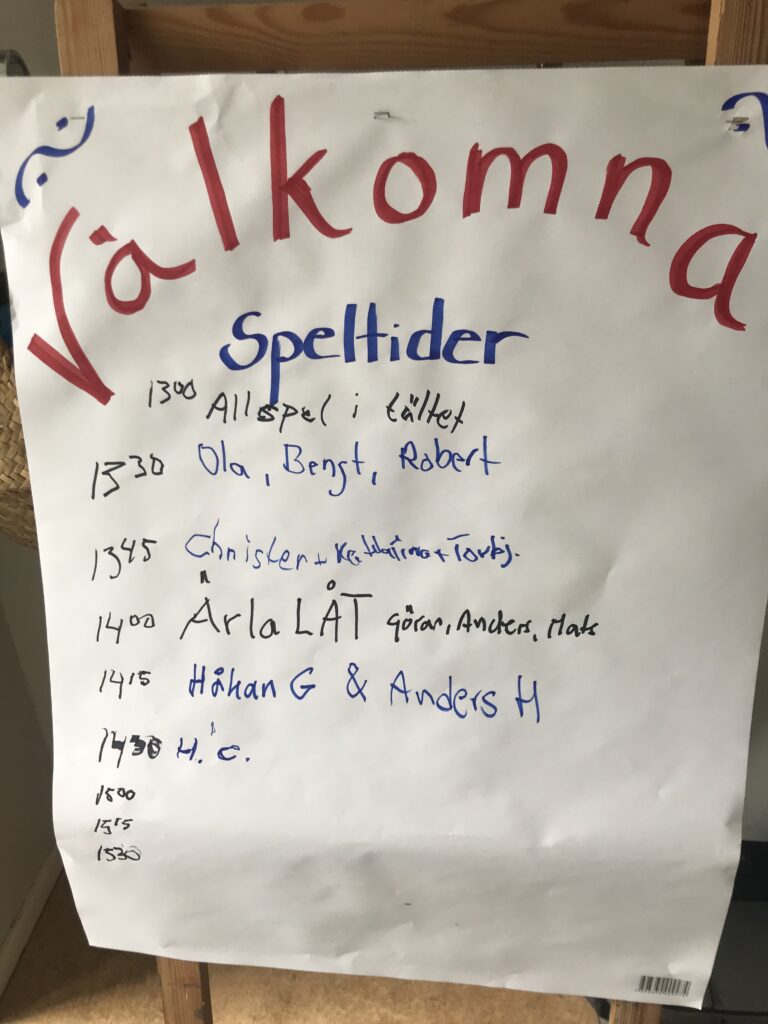 Välkomna
Speltider
13⁰⁰ Allspel i tältet
13³⁰ Ola, Bengt, Robert
13⁴⁵ Christer + Katarina + Torbj.
14⁰⁰ Ärla LÅT Göran, Anders, Mats
14¹⁵ Håkan G & Anders H
14³⁰ H.C.
15⁰⁰
15¹⁵
15³⁰